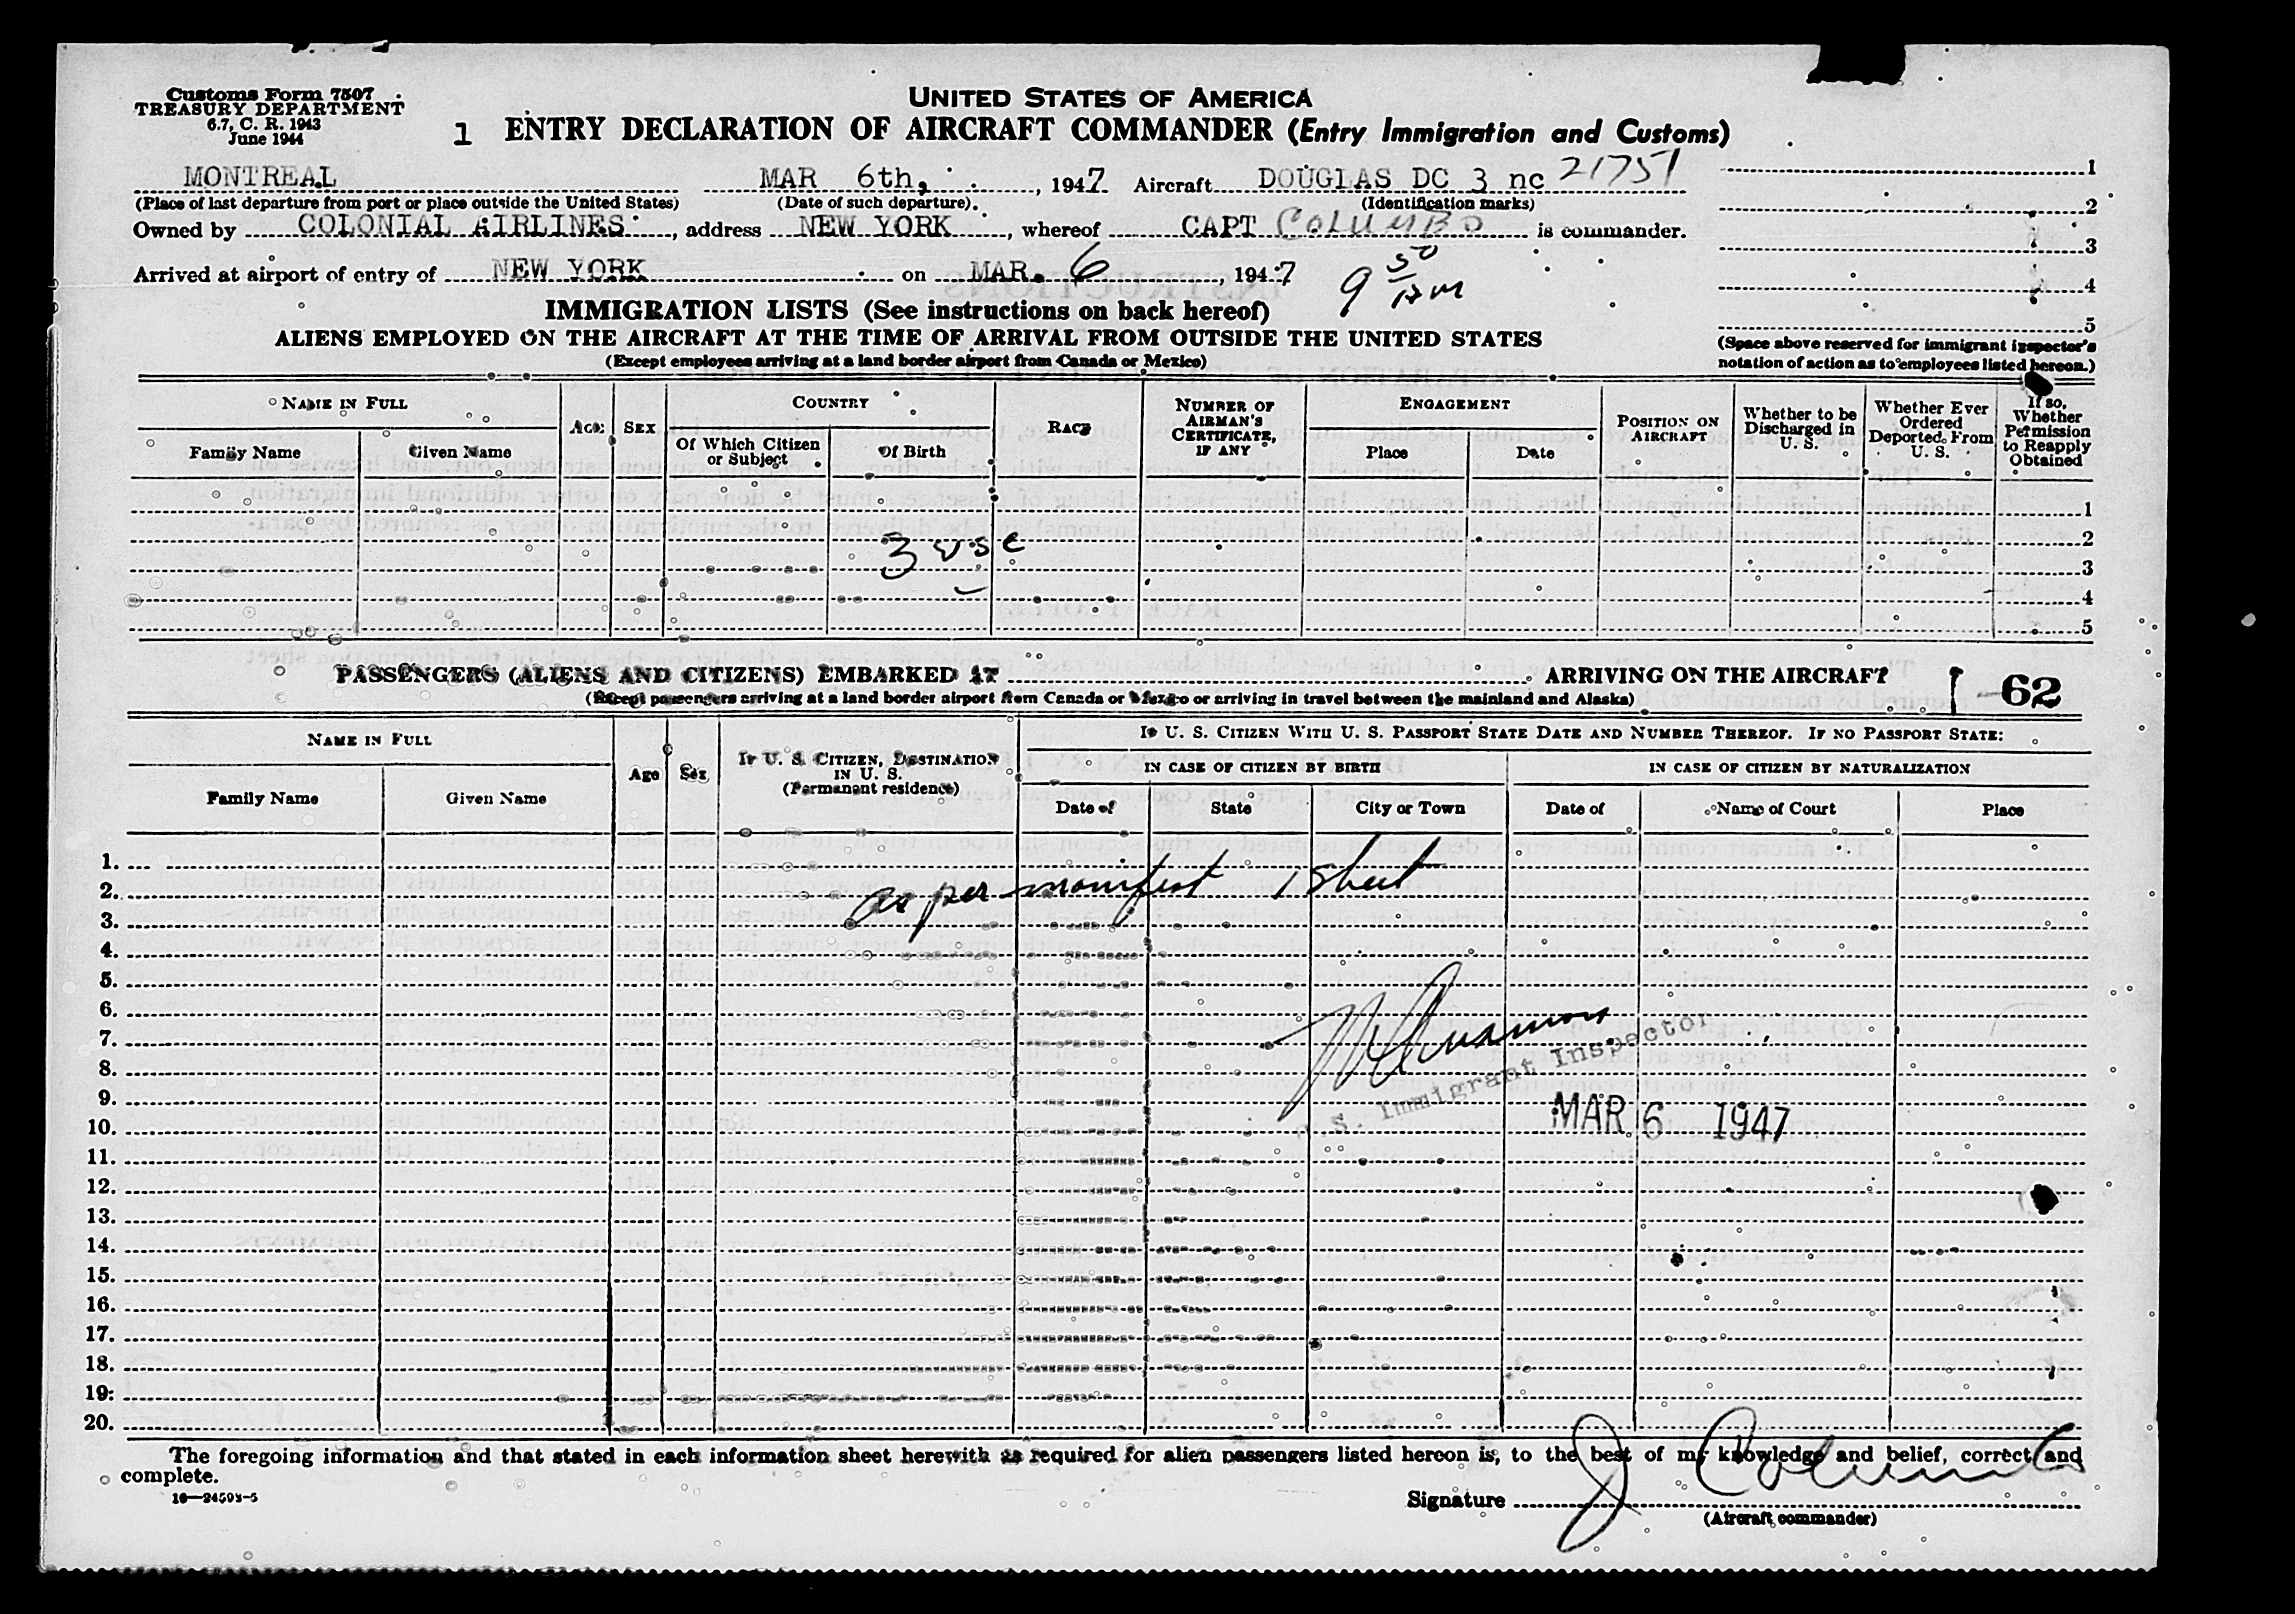 Customs Form 7507
TREASURY DEPARTMENT
6.7, C. R. 1943
June 1944
UNITED STATES OF AMERICA
1 ENTRY DECLARATION OF AIRCRAFT COMMANDER (Entry Immigration and Customs)
MONTREAL MAR 6th, , 1947 Aircraft DOUGLAS DC 3 nc 21751
(Place of last departure from port or place outside the United States) (Date of such departure) (Identification marks)
Owned by COLONIAL AIRLINES, address NEW YORK, whereof CAPT COLUMBO is commander.
Arrived at airport of entry of NEW YORK on MAR. 6, 1947 9 50 AM
1
2
3
4
5
(Space above reserved for immigrant inspector's
notation of action as to employees listed hereon.)
IMMIGRATION LISTS (See instructions on back hereof)
ALIENS EMPLOYED ON THE AIRCRAFT AT THE TIME OF ARRIVAL FROM OUTSIDE THE UNITED STATES
(Except employees arriving at a land border airport from Canada or Mexico)
NAME IN FULL
Family Name
Given Name
AGE
SEX
COUNTRY
Of Which Citizen or Subject
Of Birth
RACE
NUMBER OF AIRMAN'S CERTIFICATE, IF ANY
ENGAGEMENT
Place
Date
POSITION ON AIRCRAFT
Whether to be Discharged in U. S.
Whether Ever Ordered Deported From U. S.
If so, Whether Permission to Reapply Obtained
1
2
3 usc
3
4
5
PASSENGERS (ALIENS AND CITIZENS) EMBARKED AT ARRIVING ON THE AIRCRAFT 62
(Except passengers arriving at a land border airport from Canada or Mexico or arriving in travel between the mainland and Alaska)
NAME IN FULL
Family Name
Given Name
Age
Sex
IF U. S. CITIZEN, DESTINATION IN U. S.
(Permanent residence)
IF U. S. CITIZEN WITH U. S. PASSPORT STATE DATE AND NUMBER THEREOF. IF NO PASSPORT STATE:
IN CASE OF CITIZEN BY BIRTH
IN CASE OF CITIZEN BY NATURALIZATION
Date of
State
City or Town
Date of
Name of Court
Place
1.
2. as per manifest 1 sheet
3.
4.
5.
6.
7.
8. U.S. Immigrant Inspector
9.
10. MAR 6 1947
11.
12.
13.
14.
15.
16.
17.
18.
19.
20.
The foregoing information and that stated in each information sheet herewith as required for alien passengers listed hereon is, to the best of my knowledge and belief, correct and
complete.
16—24593-5
Signature J Columbo
(Aircraft commander)